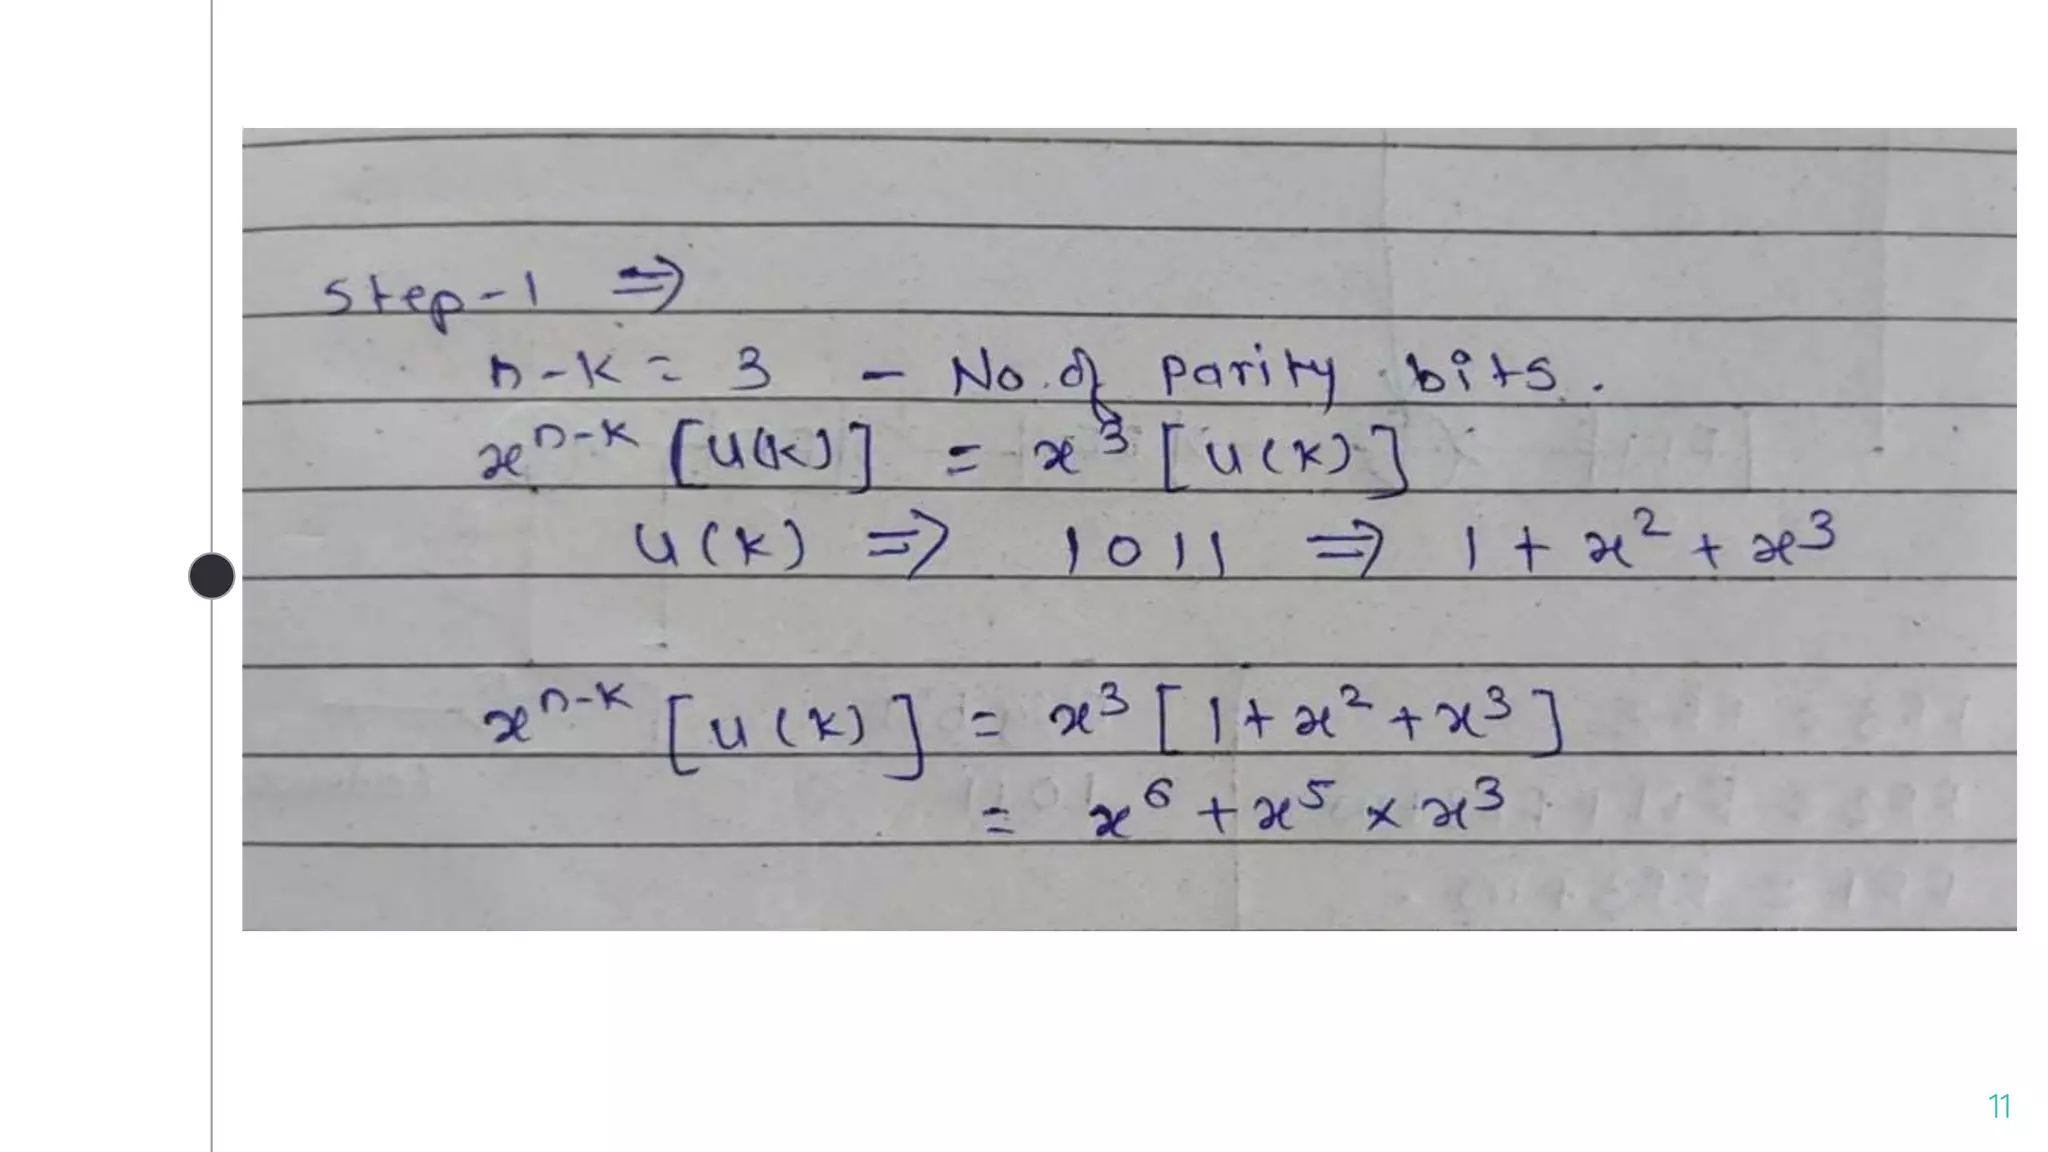 Step-1 ⇒
n-k = 3 - No. of parity bits.
x^n-k [u(k)] = x^3 [u(k)]
u(k) ⇒ 1011 ⇒ 1 + x^2 + x^3
x^n-k [u(k)] = x^3 [1 + x^2 + x^3]
= x^6 + x^5 × x^3
11